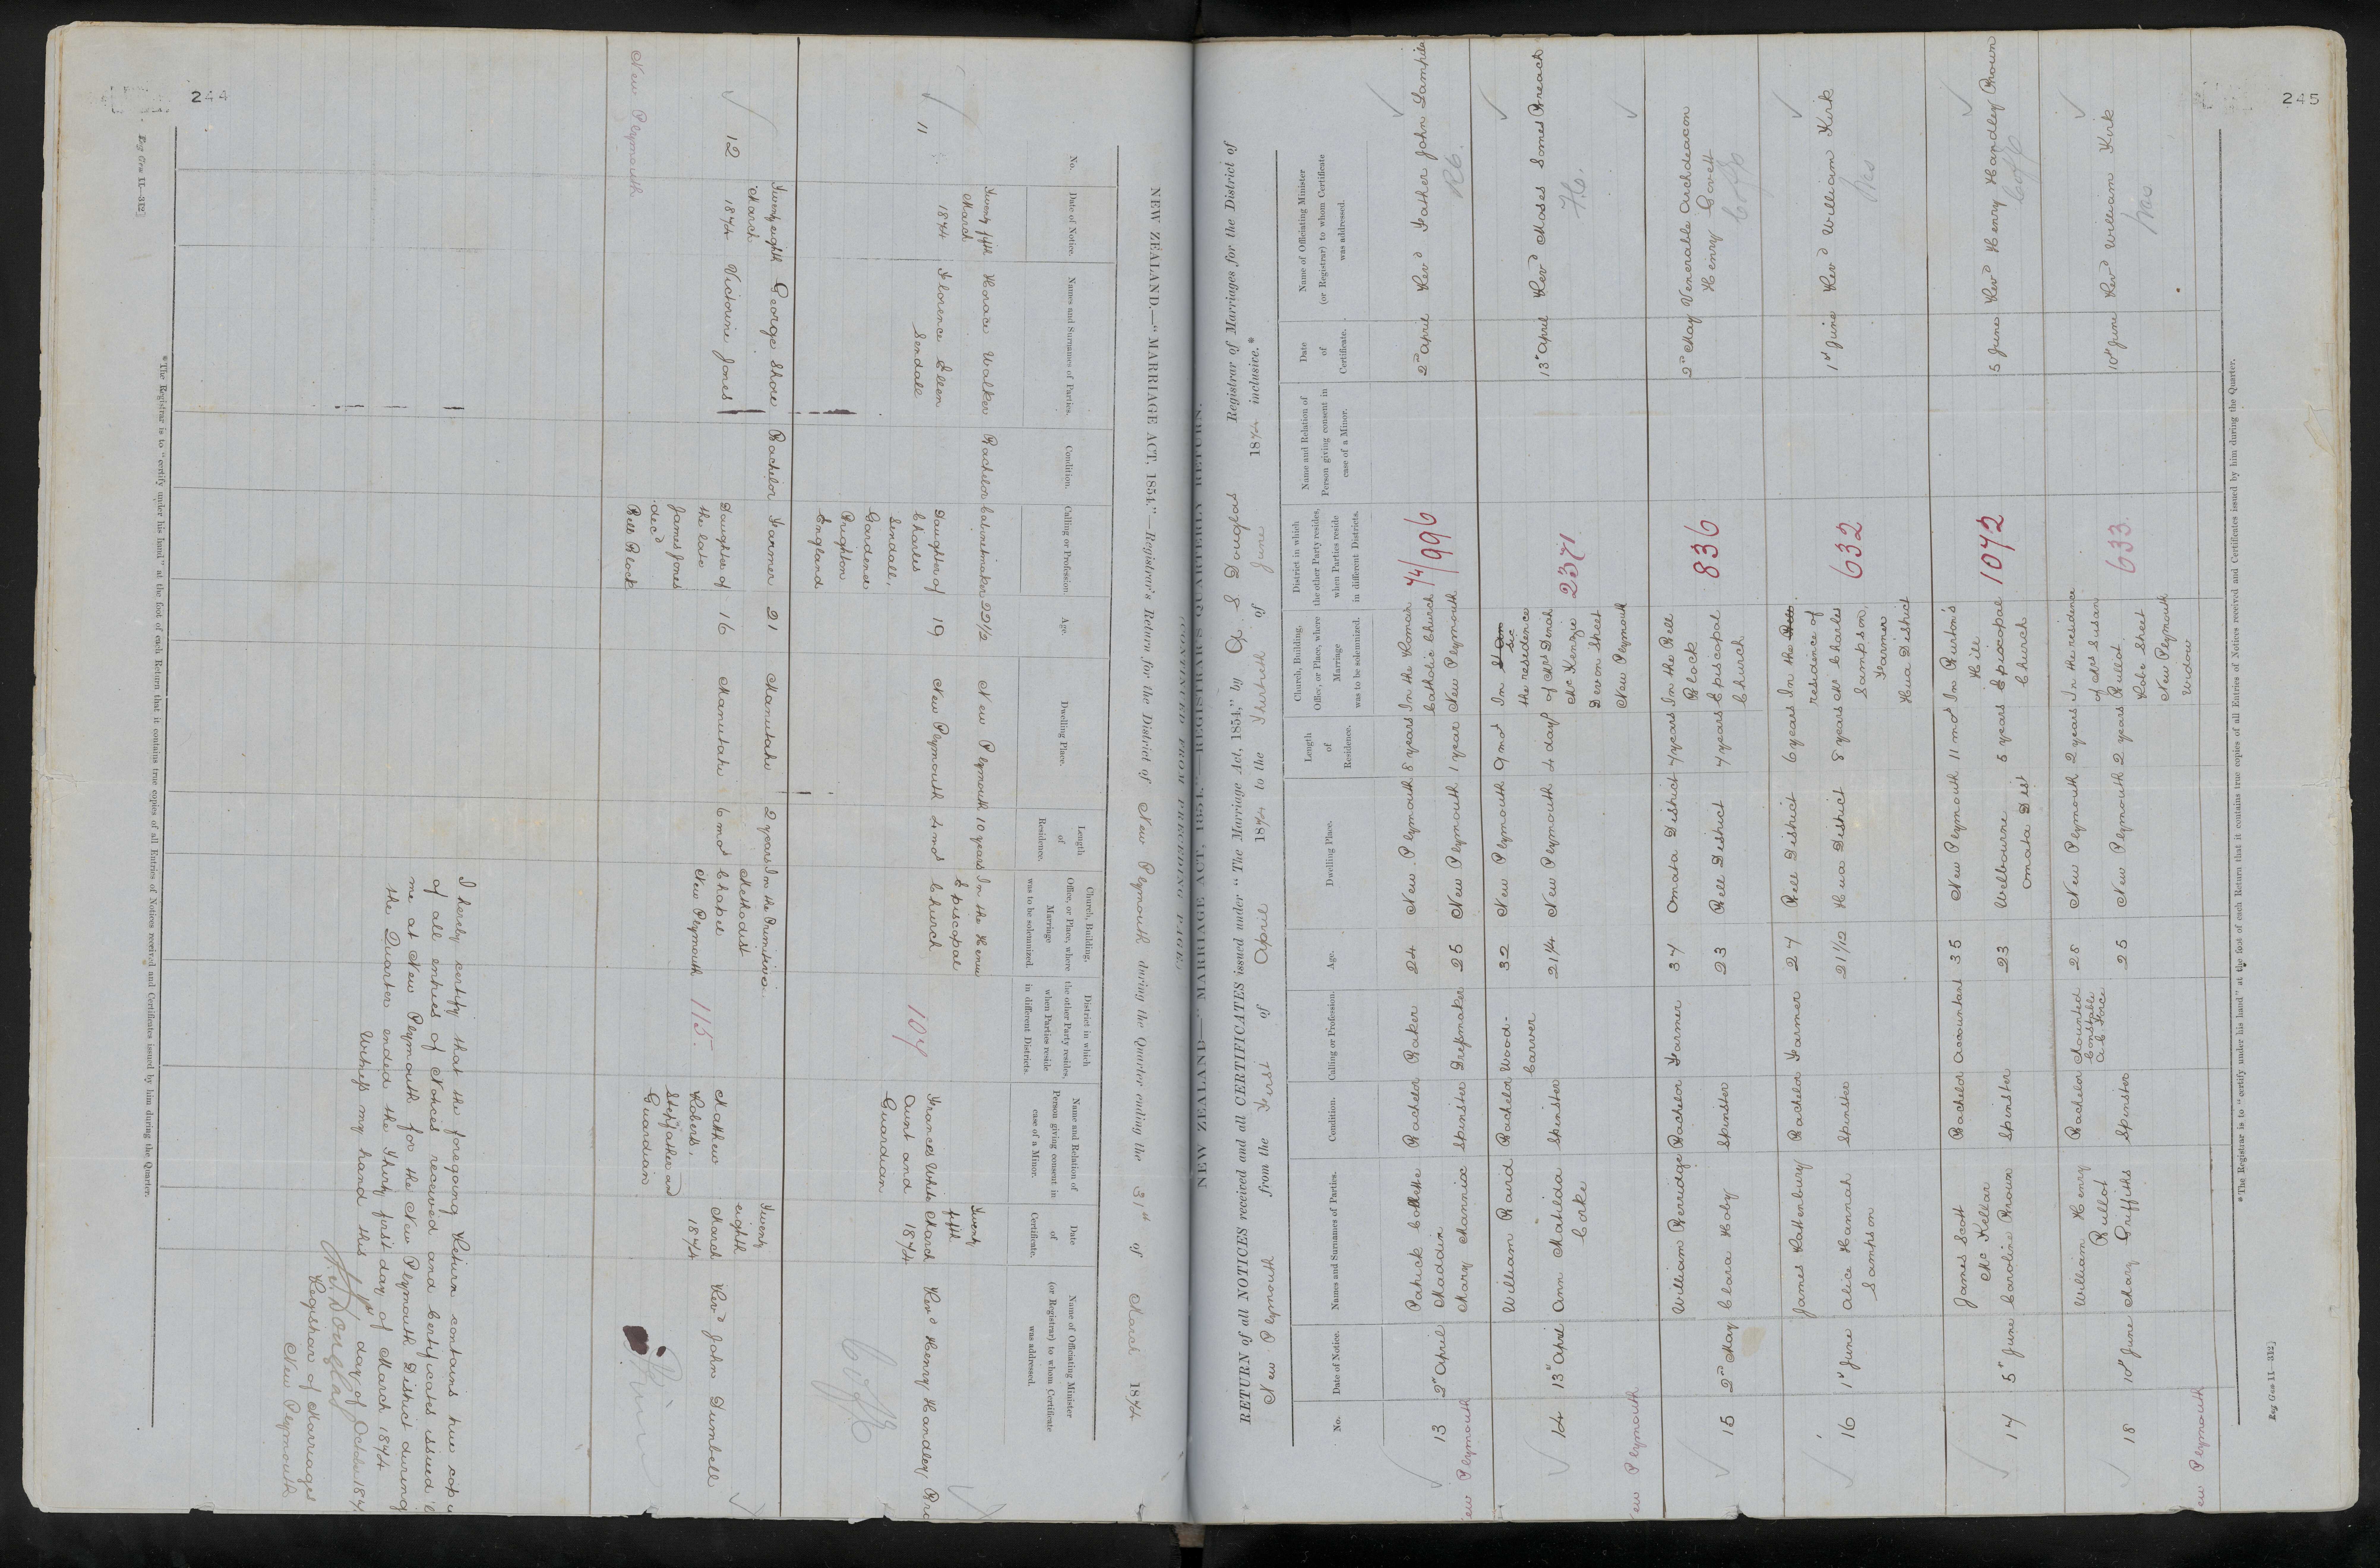 244
Reg Gen 11—312]
NEW ZEALAND.—"MARRIAGE ACT, 1854."—Registrar's Return for the District of New Plymouth during the Quarter ending the 31st of March 1874
No.
Date of Notice.
Names and Surnames of Parties.
Condition.
Calling or Profession.
Age.
Dwelling Place.
Length
of
Residence.
Church, Building,
Office, or Place, where
Marriage
was to be solemnized.
District in which
the other Party resides,
when Parties reside
in different Districts.
Name and Relation of
Person giving consent in
case of a Minor.
Date
of
Certificate.
Name of Officiating Minister
(or Registrar) to whom Certificate
was addressed.
11
Twenty fifth
March
1874
Horace Walker
Florence Ellen
Sendall
Bachelor
Cabinetmaker
Daughter of
Charles
Sendall,
Gardener
Brighton
England
22 1/2
19
New Plymouth
New Plymouth
10 years
4 mos
In the Henui
Episcopal
Church
107
Frances White
Aunt and
Guardian
Twenty
fifth
March
1874
Revd Henry Handley Bro
12
Twenty eighth
March
1874
George Shore
Victorine Jones
Bachelor
Farmer
Daughter of
the late
James Jones
decd
Bell Block
21
16
Manutahi
Manutahi
2 years
6 mos
In the Primitive
Methodist
Chapel
New Plymouth
115
Matthew
Roberts,
Stepfather and
Guardian
Twenty
eighth
March
1874
Revd John Dumbell
New Plymouth
I hereby certify that the foregoing Return contains true copies
of all entries of Notices received and Certificates issued by
me at New Plymouth for the New Plymouth District during
the Quarter ended the Thirty first day of March 1874
Witness my hand this 1st day of October 187
Douglas
Registrar of Marriages
New Plymouth
*The Registrar is to "certify under his hand" at the foot of each Return that it contains true copies of all Entries of Notices received and Certificates issued by him during the Quarter.
245
NEW ZEALAND—"MARRIAGE ACT, 1854."—REGISTRAR'S QUARTERLY RETURN.
(CONTINUED FROM PRECEDING PAGE.)
RETURN of all NOTICES received and all CERTIFICATES issued under "The Marriage Act, 1854," by A. S Douglas Registrar of Marriages for the District of
New Plymouth from the First of April 1874 to the Thirtieth of June 1874 inclusive.*
No.
Date of Notice.
Names and Surnames of Parties.
Condition.
Calling or Profession.
Age.
Dwelling Place.
Length
of
Residence.
Church, Building,
Office, or Place, where
Marriage
was to be solemnized.
District in which
the other Party resides,
when Parties reside
in different Districts.
Name and Relation of
Person giving consent in
case of a Minor.
Date
of
Certificate.
Name of Officiating Minister
(or Registrar) to whom Certificate
was addressed.
13
2nd April
Patrick Collette
Maddin
Mary Mannix
Bachelor
Spinster
Baker
Dressmaker
24
25
New Plymouth
New Plymouth
8 years
1 year
In the Roman
Catholic Church
New Plymouth
74/996
2nd April
Revd Father John Lampila
RC.
New Plymouth
14
13th April
William Baird
Ann Matilda
Corke
Bachelor
Spinster
Wood-
Carver
32
21 1/4
New Plymouth
New Plymouth
9 mos
4 days
In
Sic
the residence
of Mrs Dinah
McKenzie
Devon Street
New Plymouth
2371
13th April
Revd Moses Somes Breach
F.C.
New Plymouth
15
2nd May
William Berridge
Clara Hoby
Bachelor
Spinster
Farmer
37
23
Omata District
Bell District
7 years
7 years
In the Bell
Block
Episcopal
Church
836
2nd May
Venerable Archdeacon
Henry Govett
16
1st June
James Rattenbury
Alice Hannah
Sampson
Bachelor
Spinster
Farmer
27
21 1/12
Bell District
Hua District
6 years
8 years
In the
residence of
Mr Charles
Sampson,
Farmer
Hua District
632
1st June
Revd William Kirk
Wes
17
5th June
James Scott
McKellar
Caroline Brown
Bachelor
Spinster
Accountant
35
23
New Plymouth
Welbourne
Omata Dist
11 mos
5 years
In Burton's
Hill
Episcopal
Church
1072
5 June
Revd Henry Handley Brown
18
10th June
William Henry
Bullot
Mary Griffiths
Bachelor
Spinster
Mounted
Constable
A C Force
28
25
New Plymouth
New Plymouth
2 years
2 years
In the residence
of Mrs Susan
Bullot
Robe Street
New Plymouth
Widow
633.
10th June
Revd William Kirk
Wes
New Plymouth
*The Registrar is to "certify under his hand" at the foot of each Return that it contains true copies of all Entries of Notices received and Certificates issued by him during the Quarter.
Reg Gen 11—312]